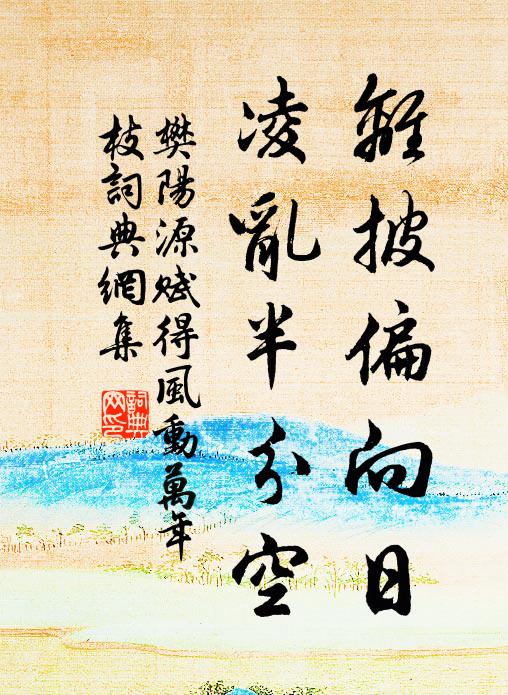 離披偏向日
凌亂半分空
樊陽源賦得風動萬年
枝詞典網集
詞典
网印